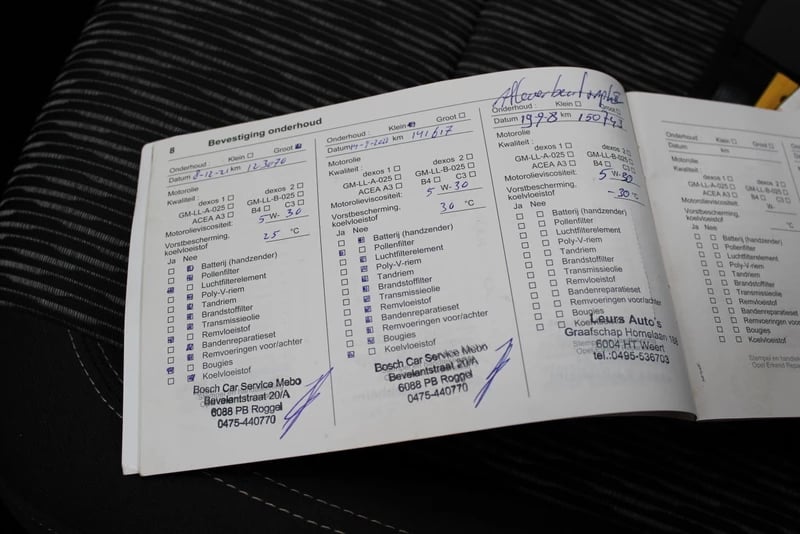 8 Bevestiging onderhoud
Onderhoud : Klein Groot
Datum 8-12-21 km 123070
Motorolie
Kwaliteit :
dexos 1 dexos 2
GM-LL-A-025 GM-LL-B-025
ACEA A3 B4 C3
Motorolieviscositeit: 5 W- 30
Vorstbescherming,
koelvloeistof 25 °C
Ja Nee
Batterij (handzender)
Pollenfilter
Luchtfilterelement
Poly-V-riem
Tandriem
Brandstoffilter
Transmissieolie
Remvloeistof
Bandenreparatieset
Remvoeringen voor/achter
Bougies
Koelvloeistof
Bosch Car Service Mebo
Bevelantstraat 20/A
6088 PB Roggel
0475-440770
Onderhoud : Klein Groot
Datum km 141617
Motorolie
Kwaliteit :
dexos 1 dexos 2
GM-LL-A-025 GM-LL-B-025
ACEA A3 B4 C3
Motorolieviscositeit: 5 W- 30
Vorstbescherming,
koelvloeistof 30 °C
Ja Nee
Batterij (handzender)
Pollenfilter
Luchtfilterelement
Poly-V-riem
Tandriem
Brandstoffilter
Transmissieolie
Remvloeistof
Bandenreparatieset
Remvoeringen voor/achter
Bougies
Koelvloeistof
Bosch Car Service Mebo
Bevelantstraat 20/A
6088 PB Roggel
0475-440770
Afleverbeurt
Onderhoud : Klein Groot
Datum 19-9-8 km 150743
Motorolie
Kwaliteit :
dexos 1 dexos 2
GM-LL-A-025 GM-LL-B-025
ACEA A3 B4 C3
Motorolieviscositeit: 5 W- 30
Vorstbescherming,
koelvloeistof -30 °C
Ja Nee
Batterij (handzender)
Pollenfilter
Luchtfilterelement
Poly-V-riem
Tandriem
Brandstoffilter
Transmissieolie
Remvloeistof
Bandenreparatieset
Remvoeringen voor/achter
Bougies
Leurs Auto's
Graafschap Hornelaan 188
6004 HT Weert
tel.:0495-536703
Onderhoud : Klein Groot
Datum km
Motorolie
Kwaliteit :
dexos 1 dexos 2
GM-LL-A-025 GM-LL-B-025
ACEA A3 B4 C3
Motorolieviscositeit: W-
Vorstbescherming,
koelvloeistof °C
Ja Nee
Batterij (handzender)
Pollenfilter
Luchtfilterelement
Poly-V-riem
Tandriem
Brandstoffilter
Transmissieolie
Remvloeistof
Bandenreparatieset
Remvoeringen voor/achter
Bougies
Koelvloeistof
Stempel en
Opel Erkend